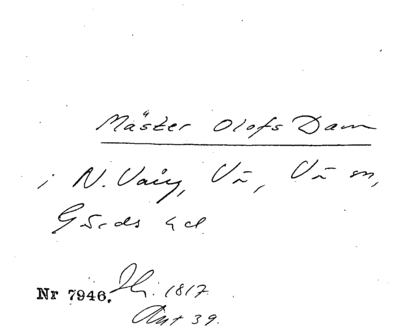 Mäster Olofs Dam
i N. Vång, Vå, Vå sn,
Gärds hd.
Nr 7946. Jh. 1817.
Ant 39.